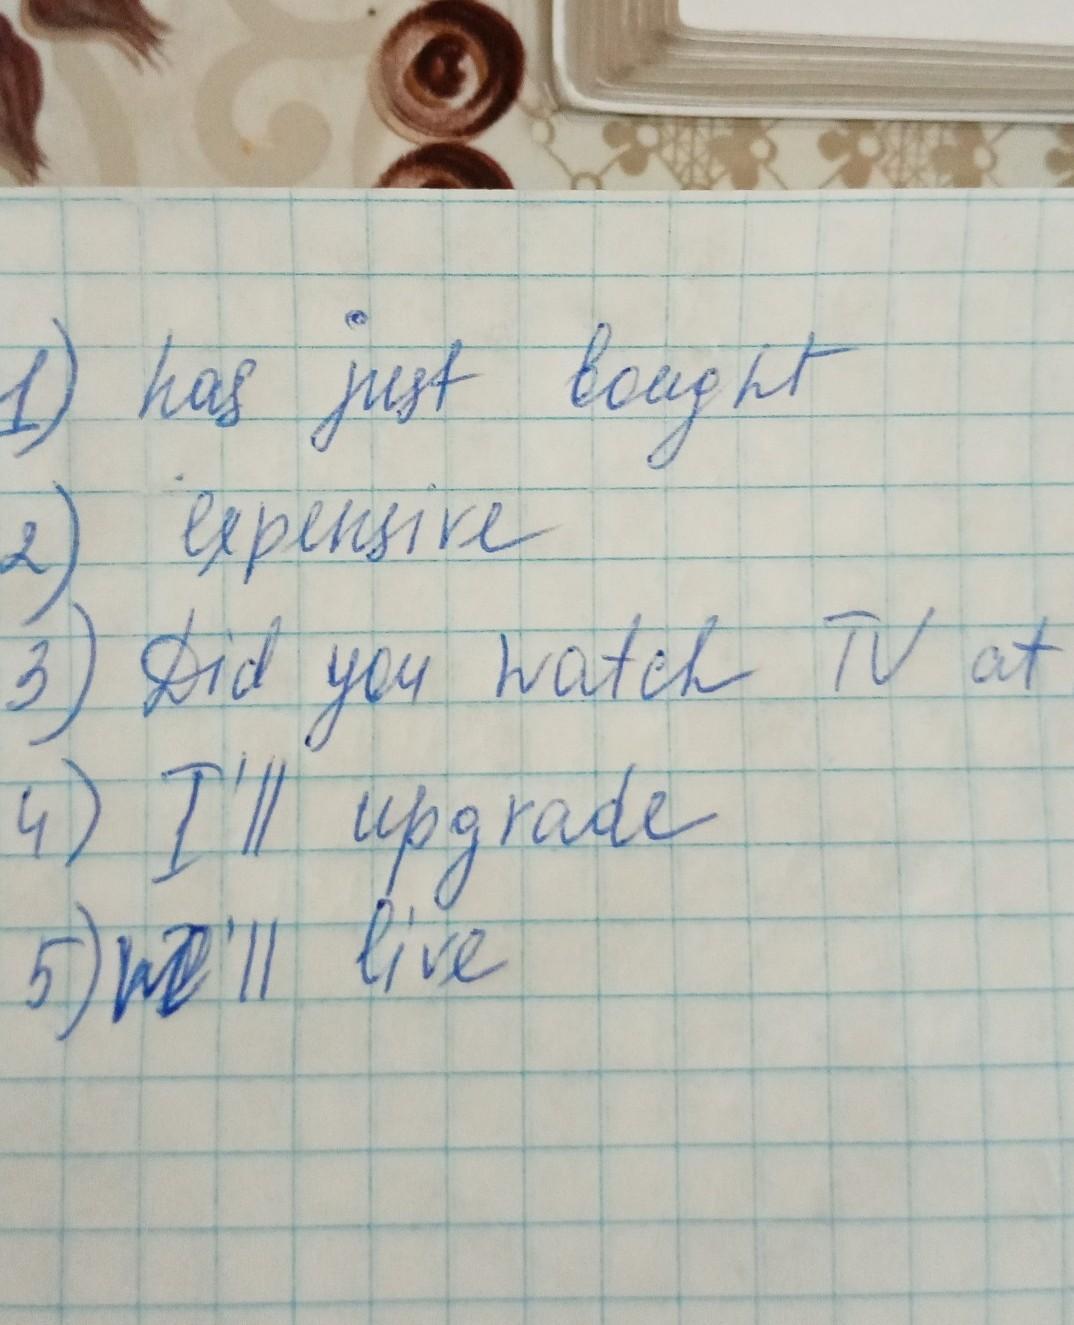 1) has just bought
2) expensive
3) Did you watch TV at
4) I'll upgrade
5) we'll live